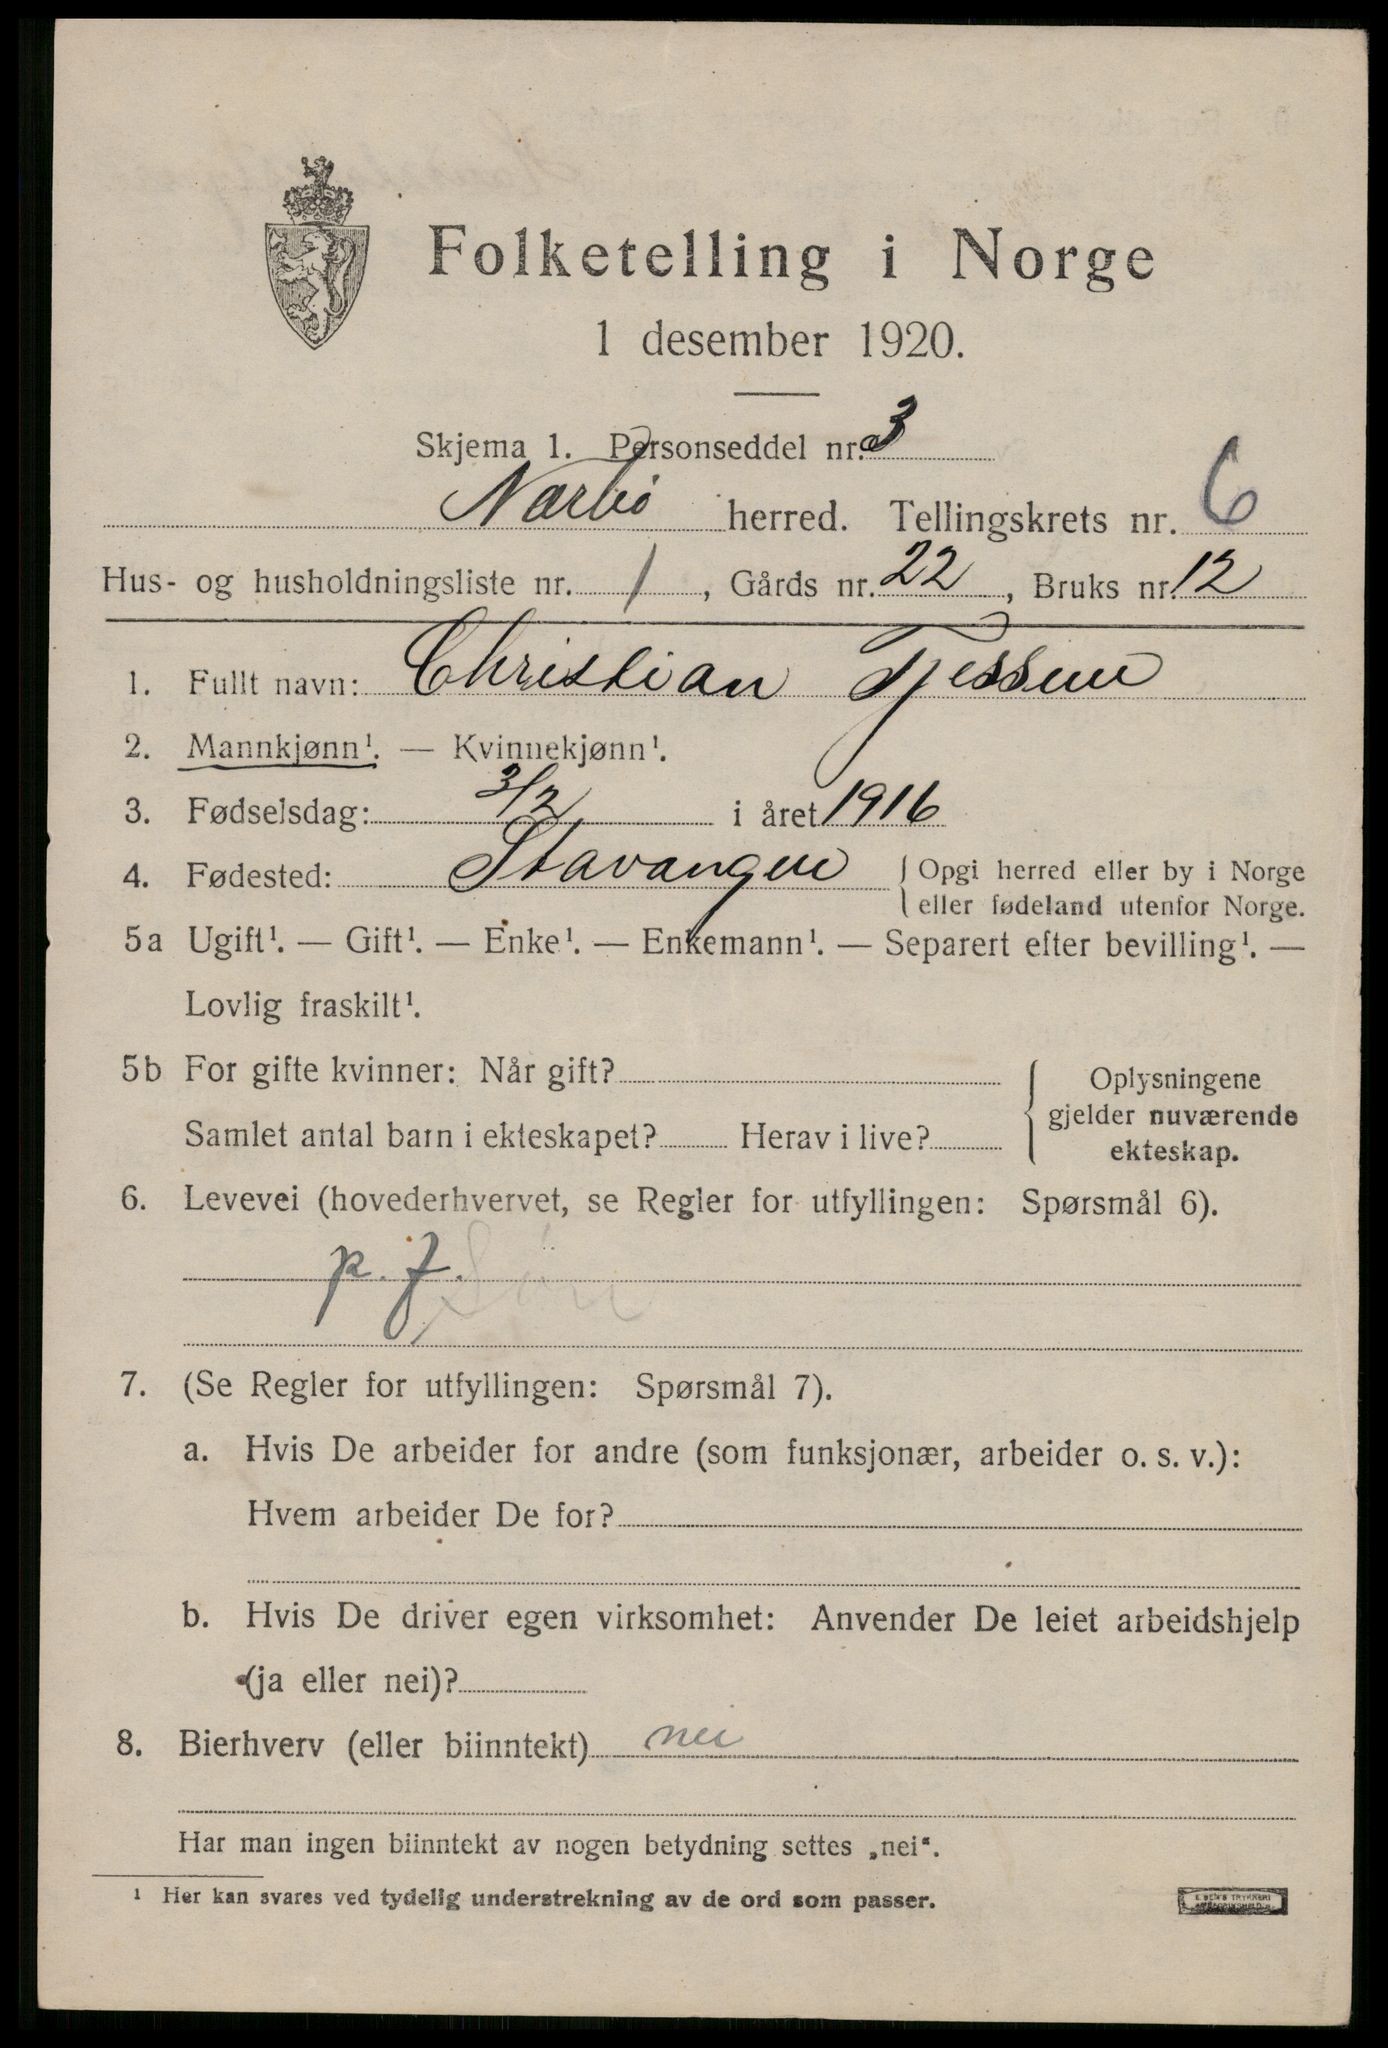 Folketelling i Norge
1 desember 1920.
Skjema 1. Personseddel nr. 3
Nærbø herred. Tellingskrets nr. 6
Hus- og husholdningsliste nr. 1, Gårds nr. 22, Bruks nr. 12
1. Fullt navn: Christian
2. Mannkjønn¹. — Kvinnekjønn¹.
3. Fødselsdag: 3/2 i året 1916
4. Fødested: Stavanger { Opgi herred eller by i Norge
eller fødeland utenfor Norge.
5a Ugift¹. — Gift¹. — Enke¹. — Enkemann¹. — Separert efter bevilling¹. —
Lovlig fraskilt¹.
5b For gifte kvinner: Når gift?
Samlet antal barn i ekteskapet? Herav i live?
Oplysningene
gjelder nuværende
ekteskap.
6. Levevei (hovederhvervet, se Regler for utfyllingen: Spørsmål 6).
p. f. Søn
7. (Se Regler for utfyllingen: Spørsmål 7).
a. Hvis De arbeider for andre (som funksjonær, arbeider o. s. v.):
Hvem arbeider De for?
b. Hvis De driver egen virksomhet: Anvender De leiet arbeidshjelp
(ja eller nei)?
8. Bierhverv (eller biinntekt) nei
Har man ingen biinntekt av nogen betydning settes „nei“.
¹ Her kan svares ved tydelig understrekning av de ord som passer.